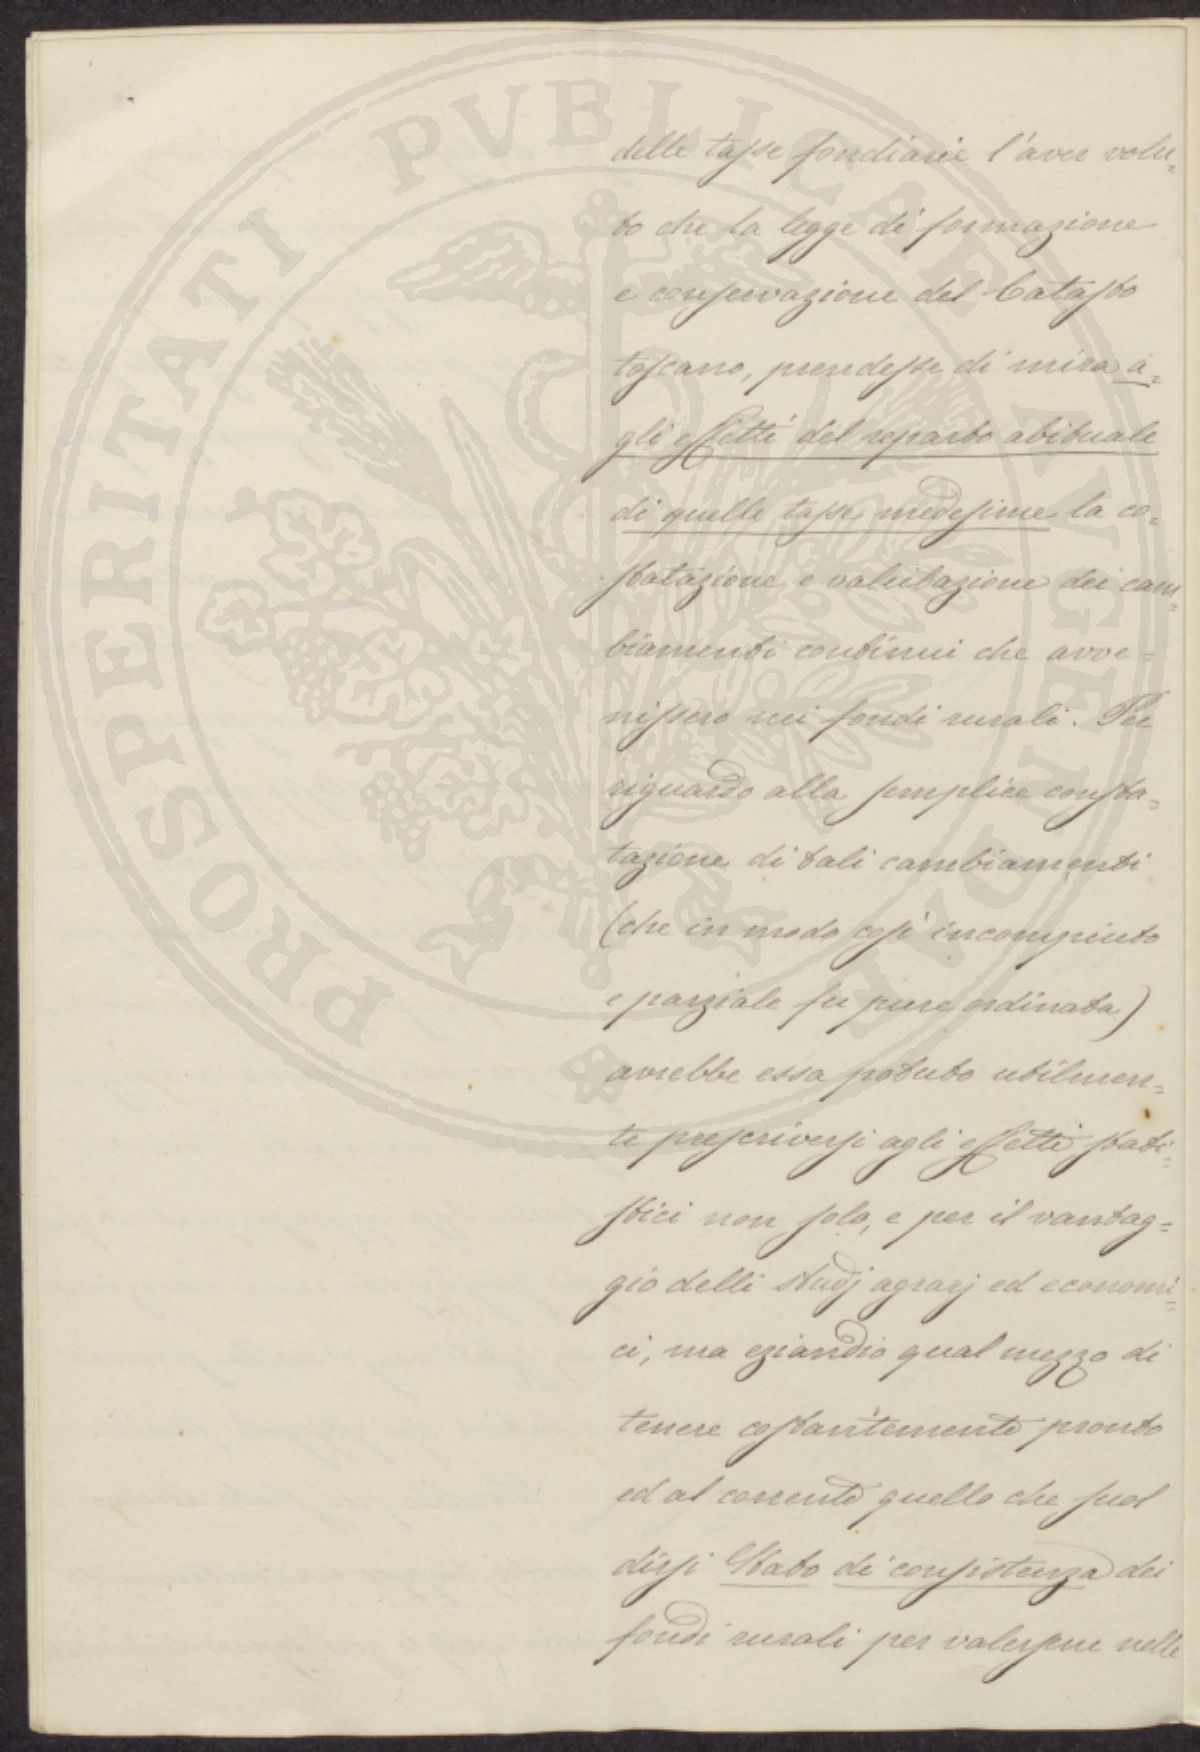 delle tasse fondiarie l'aver volu=
to che la legge di formazione
e conservazione del Catasto
toscano, prendesse di mira a=
gli effetti del reparto abituale
di quelle tasse medesime la co=
statazione e valutazione dei cam=
biamenti continui che avve=
nissero nei fondi rurali. Per
riguardo alla semplice consta=
tazione di tali cambiamenti
(che in modo così incompiuto
e parziale fu pure ordinata)
avrebbe essa potuto utilmen=
te prescriversi agli effetti stati=
stici non solo, e per il vantag=
gio delli studj agrarj ed economi=
ci, ma eziandio qual mezzo di
tenere costantemente pronto
ed al corrente quello che suol
dirsi Stato di consistenza dei
fondi rurali per valersene nelle
PROSPERITATI PVBLICAE AVGENDAE